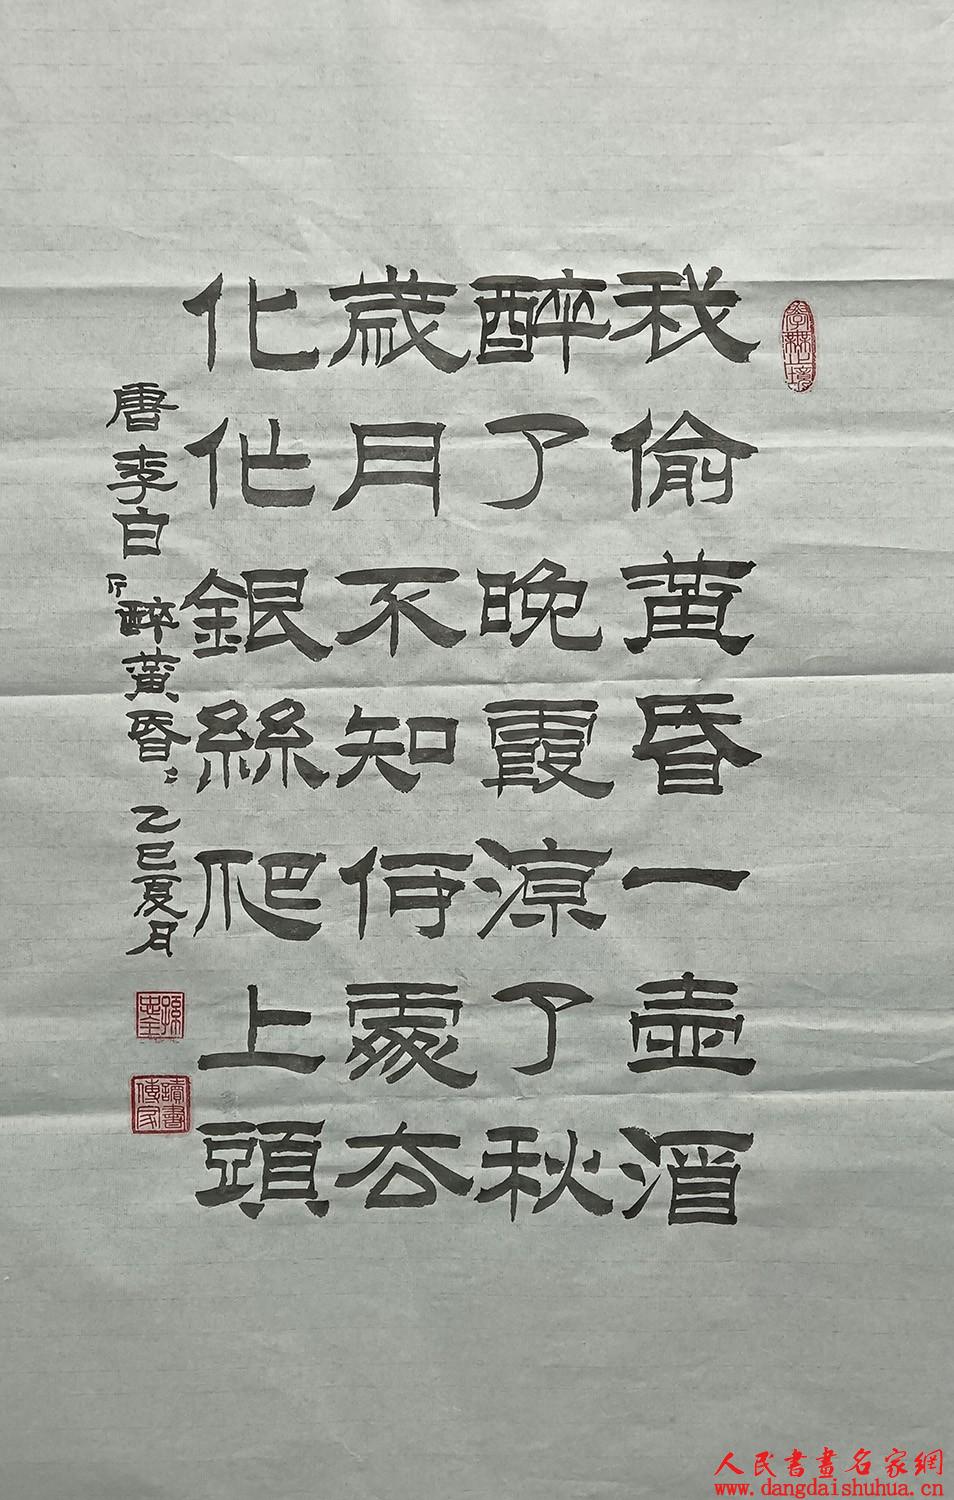 我偷黄昏一壶酒
醉了晚霞凉了秋
歲月不知何處去
化作銀絲爬上頭
唐李白 醉黄昏 乙巳夏月
學無止境
孫忠全
讀書傳家
人民書畫名家網
www.dangdaishuhua.cn